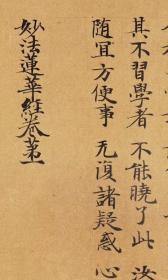 其不習學者 不能曉了此 汝
随冝方便事 无復諸疑惑 心
妙法蓮華經卷苐一